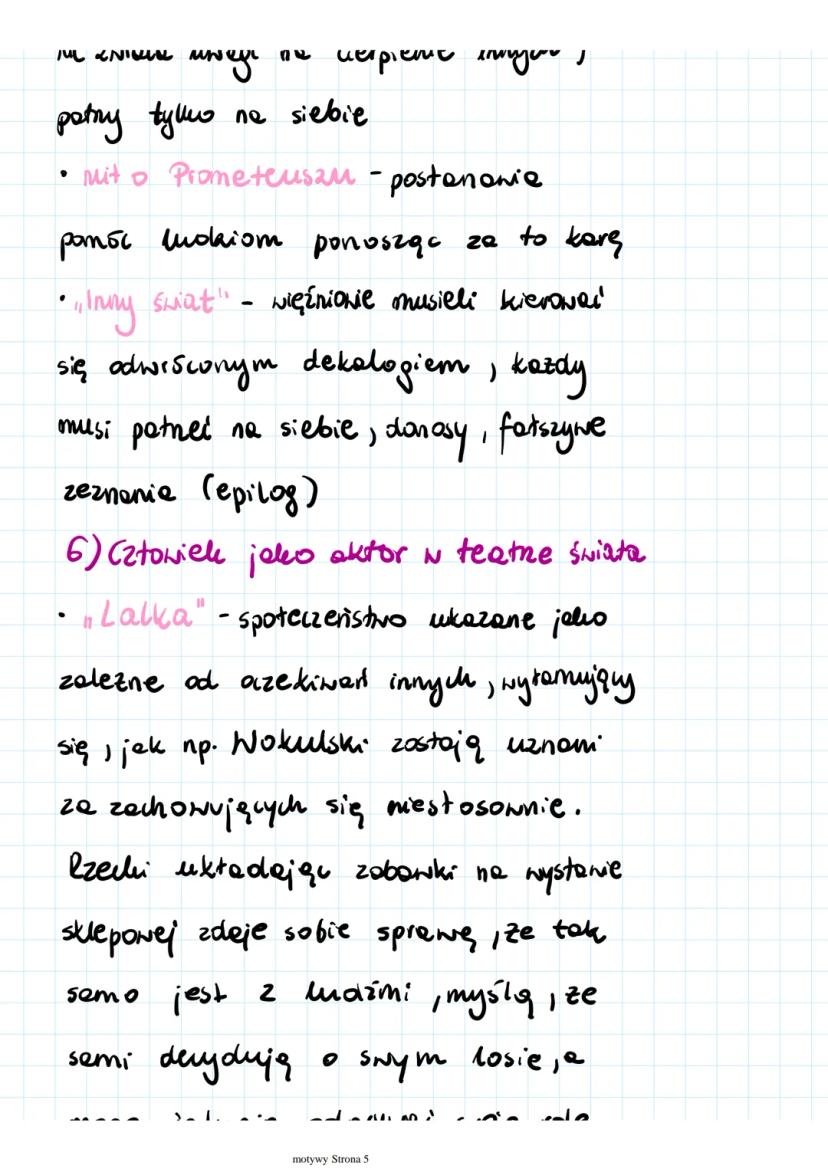 nie zwraca uwagi na cierpienie innych,
patrzy tylko na siebie
• mit o Prometeuszu - postanawia
pomóc ludziom ponosząc za to karę
• "Inny świat" - więźniowie musieli kierować
się odwróconym dekalogiem, każdy
musi patrzeć na siebie, donosy, fałszywe
zeznania (epilog)
6) Człowiek jako aktor w teatrze świata
• "Lalka" - społeczeństwo ukazane jako
zależne od oczekiwań innych, wyłamujący
się, jak np. Wokulski zostają uznani
za zachowujących się niestosownie.
Rzecki układając zabawki na wystawie
sklepowej zdaje sobie sprawę, że tak
samo jest z ludźmi, myślą, że
sami decydują o swym losie, a
swoje role
motywy Strona 5